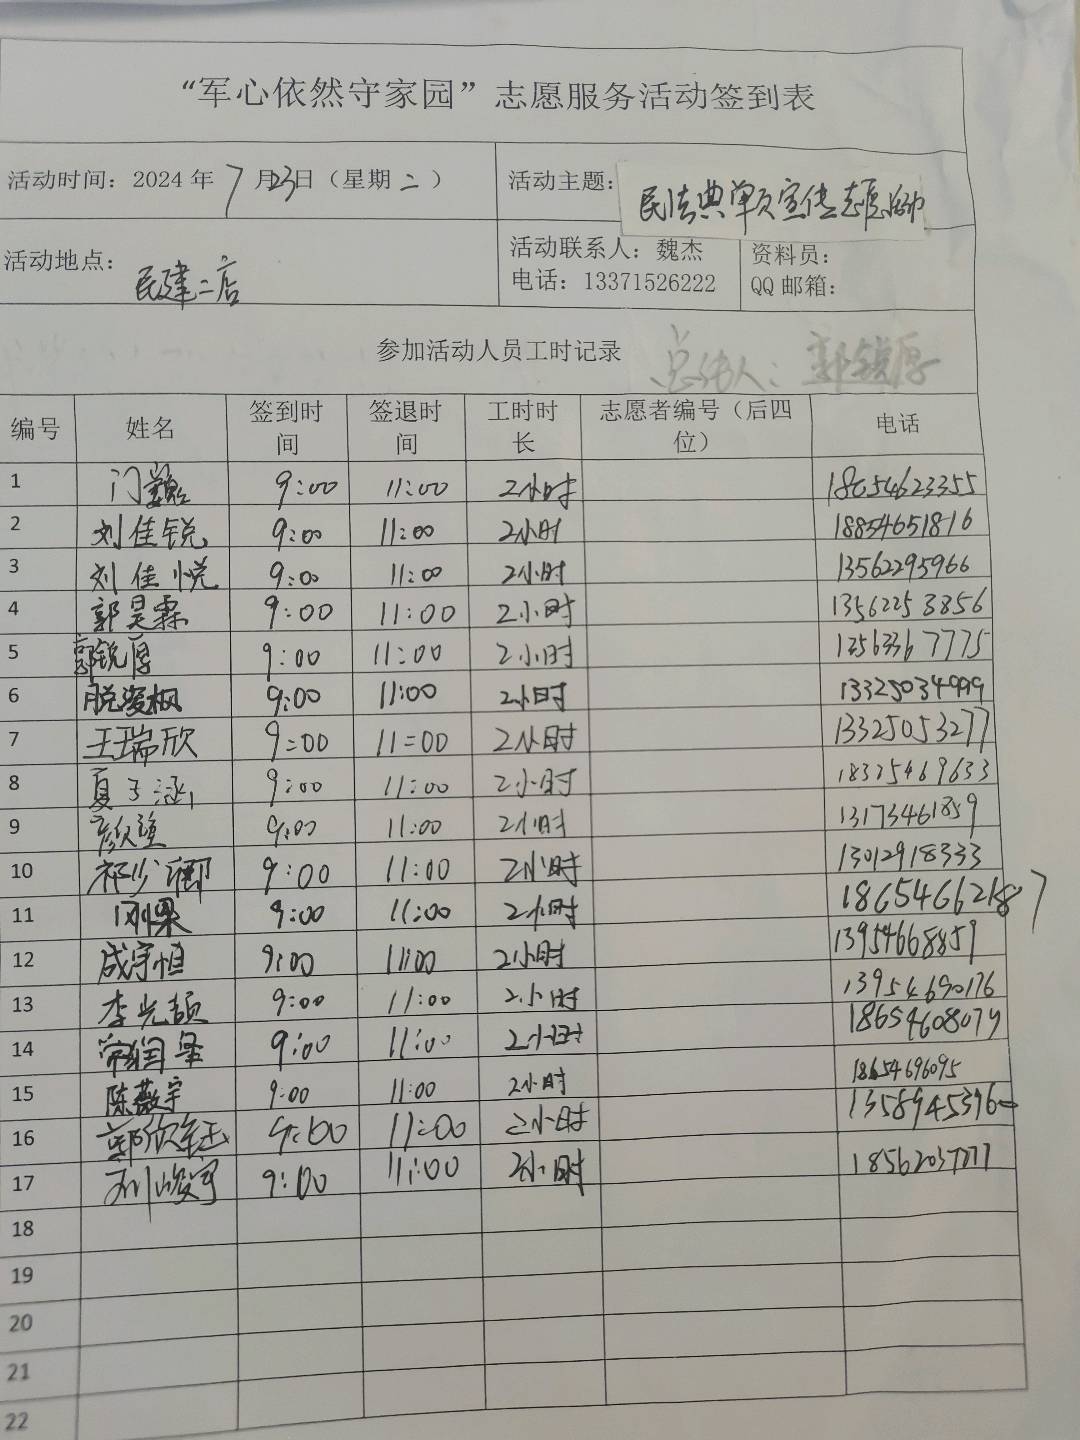 “军心依然守家园”志愿服务活动签到表
活动时间：2024年7月23日（星期二）
活动主题：民法典单页宣传志愿活动
活动地点：民建二店
活动联系人：魏杰
电话：13371526222
资料员：
QQ邮箱：
参加活动人员工时记录
总结人：郭锐厚
编号 姓名 签到时间 签退时间 工时时长 志愿者编号（后四位） 电话
1 门 9:00 11:00 2小时 18654623355
2 刘佳锐 9:00 11:00 2小时 18854651816
3 刘佳悦 9:00 11:00 2小时 13562295966
4 郭昊霖 9:00 11:00 2小时 13562253856
5 郭锐厚 9:00 11:00 2小时 13563367775
6 9:00 11:00 2小时 13325034999
7 王瑞欣 9:00 11:00 2小时 13325053277
8 夏子涵 9:00 11:00 2小时 18325469633
9 9:00 11:00 2小时 13173461859
10 祁少卿 9:00 11:00 2小时 13012918333
11 9:00 11:00 2小时 18654662187
12 成宇恒 9:00 11:00 2小时 13954668859
13 李光颉 9:00 11:00 2小时 13954690176
14 9:00 11:00 2小时 18654608079
15 陈薇宇 9:00 11:00 2小时 18654696095
16 郭欣钰 9:00 11:00 2小时 13589453960
17 刘峻宇 9:00 11:00 2小时 18562037777
18
19
20
21
22